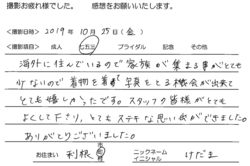 撮影お疲れ様でした。 感想をお願いいたします。
<撮影日時> 2019年 10月 25日(金)
<撮影項目> 成人 七五三 ブライダル 記念 その他
海外に住んでいるので家族が集まる事がとても
少ないので着物を着て写真をとる機会が出来て
とても嬉しかったです。スタッフの皆様がとても
よくして下さり、とてもステキな思い出ができました。
ありがとうございました。
お住まい 利根 市 町 村
ニックネーム イニシャル けだま